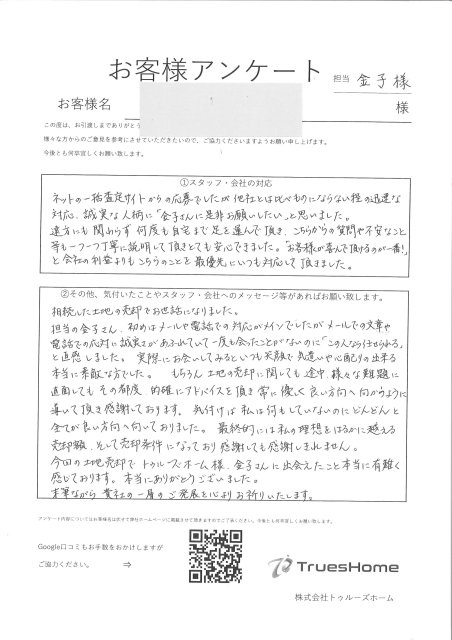 お客様アンケート 担当 金子様
お客様名 様
この度は、お引渡しまでありがとう
様々な方からのご意見を参考にさせていただきたいので、ご協力くださいますようお願い申し上げます。
今後とも何卒宜しくお願い致します。
①スタッフ・会社の対応
ネットの一括査定サイトからの応募でしたが他社とは比べものにならない程の迅速な
対応、誠実な人柄に「金子さんに是非お願いしたい」と思いました。
遠方にも関わらず何度も自宅まで足を運んで頂き、こちらからの質問や不安なこと
等も一つ一つ丁寧に説明して頂きとても安心できました。「お客様が喜んで頂けるのが一番!」
と会社の利益よりもこちらのことを最優先にいつも対応して頂きました。
②その他、気付いたことやスタッフ・会社へのメッセージ等があればお願い致します。
相続した土地の売却でお世話になりました。
担当の金子さん、初めはメールや電話での対応がメインでしたがメールでの文章や
電話での応対に誠実さがあふれていて一度も会ったことがないのに「この人なら任せられる」
と直感しました。実際にお会いしてみるといつも笑顔で気遣いや心配りの出来る
本当に素敵な方でした。もちろん土地の売却に関しても途中、様々な難題に
直面してもその都度、的確にアドバイスを頂き常に優しく良い方向へ向かうように
導いて頂き感謝しております。気付けば私は何もしていないのにどんどんと
全てが良い方向へ向いておりました。最終的には私の理想をはるかに越える
売却額、そして売却条件になっており感謝しても感謝しきれません。
今回の土地売却でトゥルーズホーム様、金子さんに出会えたこと本当に有難く
感じております。本当にありがとうございました。
末筆ながら貴社の一層のご発展を心よりお祈りいたします。
アンケート内容についてはお客様名は伏せて弊社ホームページに掲載させて頂きますのでご了承ください。今後とも何卒宜しくお願い致します。
Google口コミもお手数をおかけしますが
ご協力ください。 ⇒
TruesHome
株式会社トゥルーズホーム